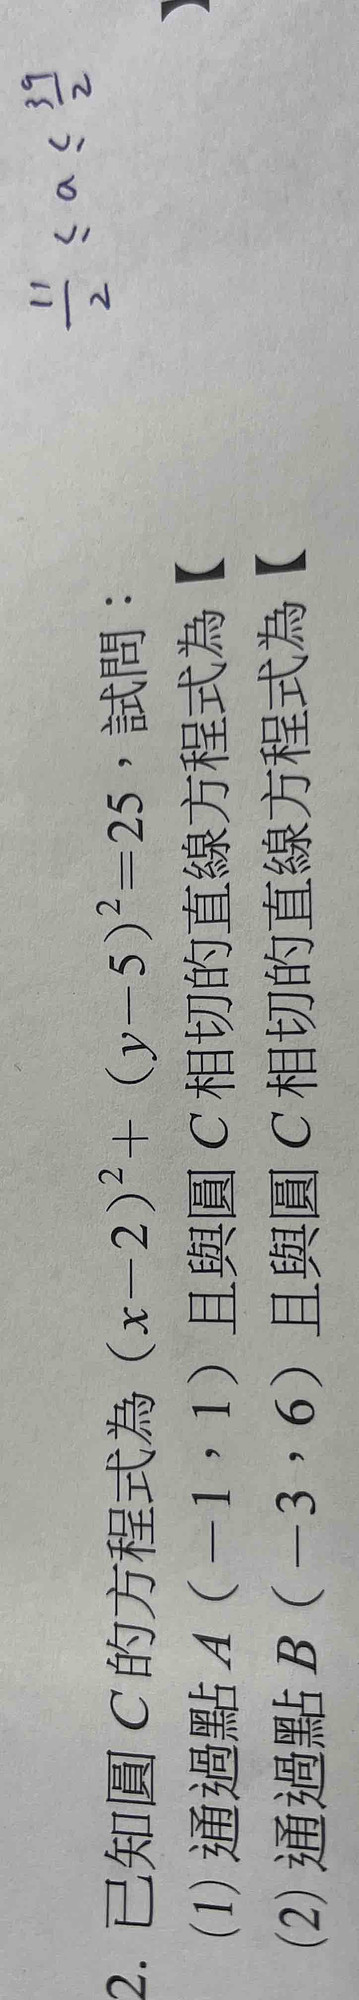 11/2 ≤ a ≤ 39/2
2. 已知圓 C 的方程式為（x−2）²＋（y−5）²=25，試問：
(1) 通過點 A（−1，1）且與圓 C 相切的直線方程式為【 】
(2) 通過點 B（−3，6）且與圓 C 相切的直線方程式為【